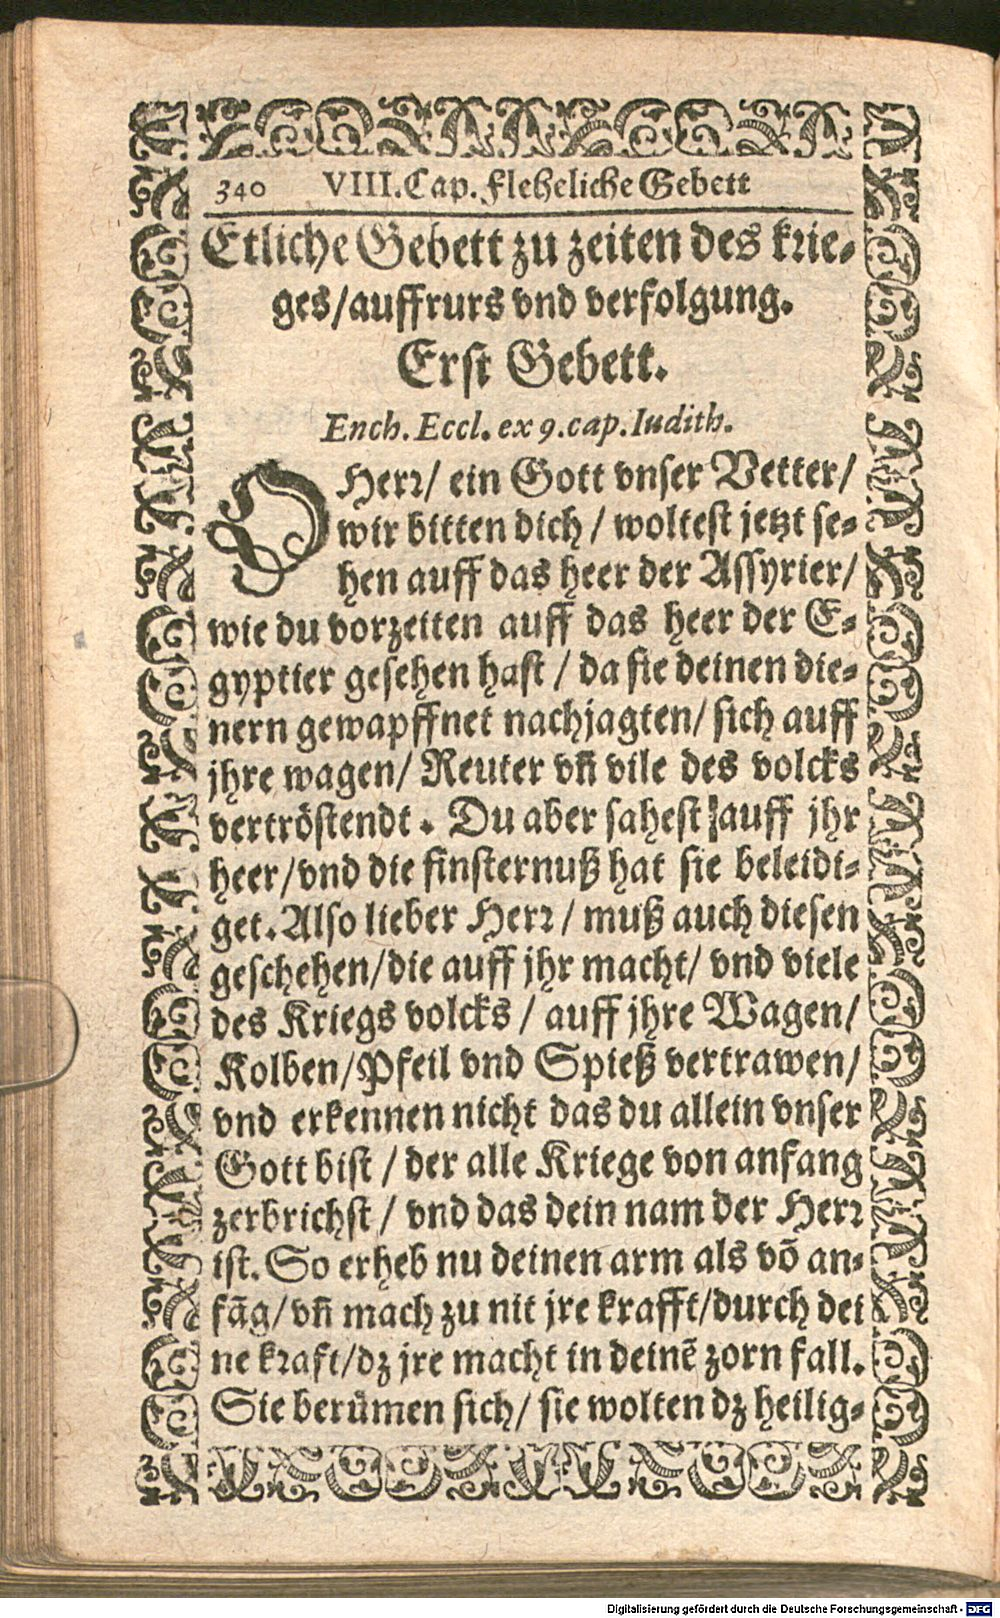 340 VIII. Cap. Fleheliche Gebett
Etliche Gebett zu zeiten des krie-
ges/auffrurs vnd verfolgung.
Erst Gebett.
Ench. Eccl. ex 9. cap. Iudith.
O Herr/ ein Gott vnser Vetter/
wir bitten dich / woltest jetzt se-
hen auff das heer der Assyrier/
wie du vorzeiten auff das heer der E-
gyptier gesehen hast / da sie deinen die-
nern gewapffnet nachjagten/ sich auff
jhre wagen/ Reuter vñ vile des volcks
vertröstendt . Du aber sahest auff jhr
heer/vnd die finsternuß hat sie beleidi-
get. Also lieber Herr / muß auch diesen
geschehen/die auff jhr macht/ vnd viele
des Kriegs volcks / auff jhre Wagen/
Kolben/Pfeil vnd Spieß vertrawen/
vnd erkennen nicht das du allein vnser
Gott bist / der alle Kriege von anfang
zerbrichst / vnd das dein nam der Herr
ist. So erheb nu deinen arm als võ an-
fãg/vñ mach zu nit jre krafft/durch dei
ne kraft/dz jre macht in deinẽ zorn fall.
Sie berůmen sich/ sie wolten dz heilig-
Digitalisierung gefördert durch die Deutsche Forschungsgemeinschaft - DFG